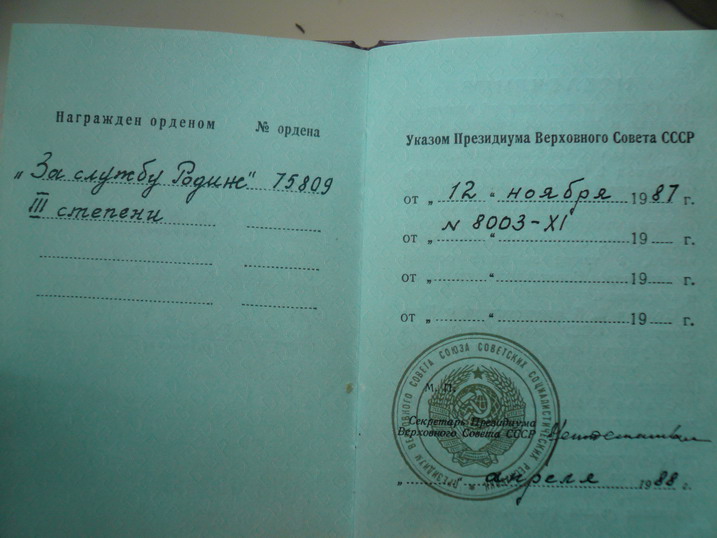 Награжден орденом № ордена
„За службу Родине" 75809
III степени
Указом Президиума Верховного Совета СССР
от „ 12 “ ноября 1987 г.
N 8003-XI
от „ “ 19 г.
от „ “ 19 г.
от „ “ 19 г.
ПРЕЗИДИУМ ВЕРХОВНОГО СОВЕТА СОЮЗА СОВЕТСКИХ СОЦИАЛИСТИЧЕСКИХ РЕСПУБЛИК
М. П.
Секретарь Президиума
Верховного Совета СССР
„ “ апреля 1988 г.